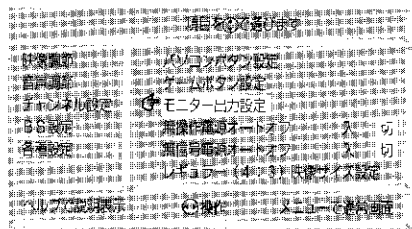 項目を で選びます
映像調節
音声調節
チャンネル設定
BS設定
各種設定
パソコンボタン設定
ゲームボタン設定
モニター出力設定
無操作電源オートオフ 入 切
無信号電源オートオフ 入 切
レギュラー(4:3)映像サイズ設定
ヘルプで説明表示 で操作 メニューで通常画面